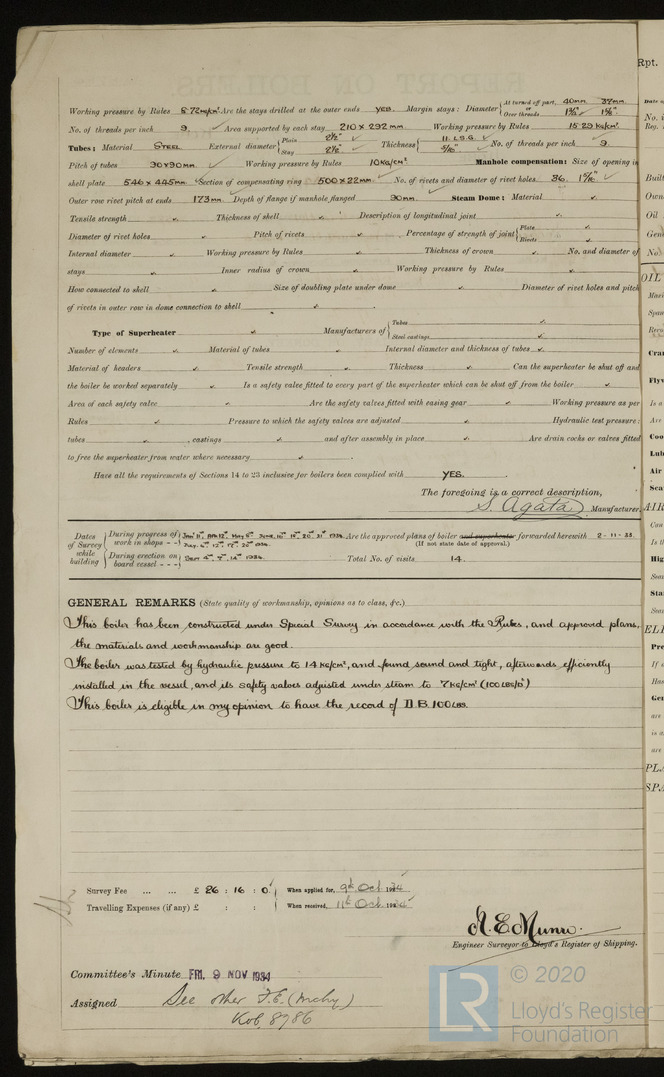 Working pressure by Rules 8.72 Kg/cm². Are the stays drilled at the outer ends YES. Margin stays: Diameter { At turned off part, 40mm. 37mm.
or Over threads 1¾" 1⅝"
No. of threads per inch 9. Area supported by each stay 210 x 292 mm Working pressure by Rules 15.29 Kg/cm².
Tubes: Material STEEL External diameter { Plain 2½" Stay 2½" Thickness { 11. L.S.G. 5/16" No. of threads per inch 9.
Pitch of tubes 90x90mm. Working pressure by Rules 10Kg/cm² Manhole compensation: Size of opening in
shell plate 546 x 445mm. Section of compensating ring 500x22mm. No. of rivets and diameter of rivet holes 36.
Outer row rivet pitch at ends 173mm Depth of flange if manhole flanged 90mm. Steam Dome: Material
Tensile strength Thickness of shell Description of longitudinal joint
Diameter of rivet holes Pitch of rivets Percentage of strength of joint { Plate Rivets
Internal diameter Working pressure by Rules Thickness of crown No. and diameter of
stays Inner radius of crown Working pressure by Rules
How connected to shell Size of doubling plate under dome Diameter of rivet holes and pitch
of rivets in outer row in dome connection to shell
Type of Superheater Manufacturers of { Tubes Steel castings
Number of elements Material of tubes Internal diameter and thickness of tubes
Material of headers Tensile strength Thickness Can the superheater be shut off and
the boiler be worked separately Is a safety valve fitted to every part of the superheater which can be shut off from the boiler
Area of each safety valve Are the safety valves fitted with easing gear Working pressure as per
Rules Pressure to which the safety valves are adjusted Hydraulic test pressure:
tubes , castings and after assembly in place Are drain cocks or valves fitted
to free the superheater from water where necessary
Have all the requirements of Sections 14 to 23 inclusive for boilers been complied with YES.
The foregoing is a correct description,
S. Agata Manufacturer.
Dates of Survey while building { During progress of work in shops - - Are the approved plans of boiler and superheater forwarded herewith 2-11-33
(If not state date of approval.)
During erection on board vessel - - - Sept 4th 7th 14th 1934. Total No. of visits 14.
GENERAL REMARKS (State quality of workmanship, opinions as to class, &c.)
This boiler has been constructed under Special Survey in accordance with the Rules, and approved plans,
the materials and workmanship are good.
The boiler was tested by hydraulic pressure to 14 Kg/cm², and found sound and tight, afterwards efficiently
installed in the vessel, and its safety valves adjusted under steam to 7Kg/cm² (100 LBS/□")
This boiler is eligible in my opinion to have the record of D.B. 100 LBS.
Survey Fee ... ... £ 26 : 16 : 0 When applied for, 9th Oct 1934
Travelling Expenses (if any) £ : : When received, 11th Oct 1934
A. E. Munro.
Engineer Surveyor to Lloyd's Register of Shipping.
Committee's Minute FRI. 9 NOV 1934
Assigned See other F.E. (Mchy)
Kob. 8986
© 2020
LR
Lloyd's Register
Foundation
Rpt.